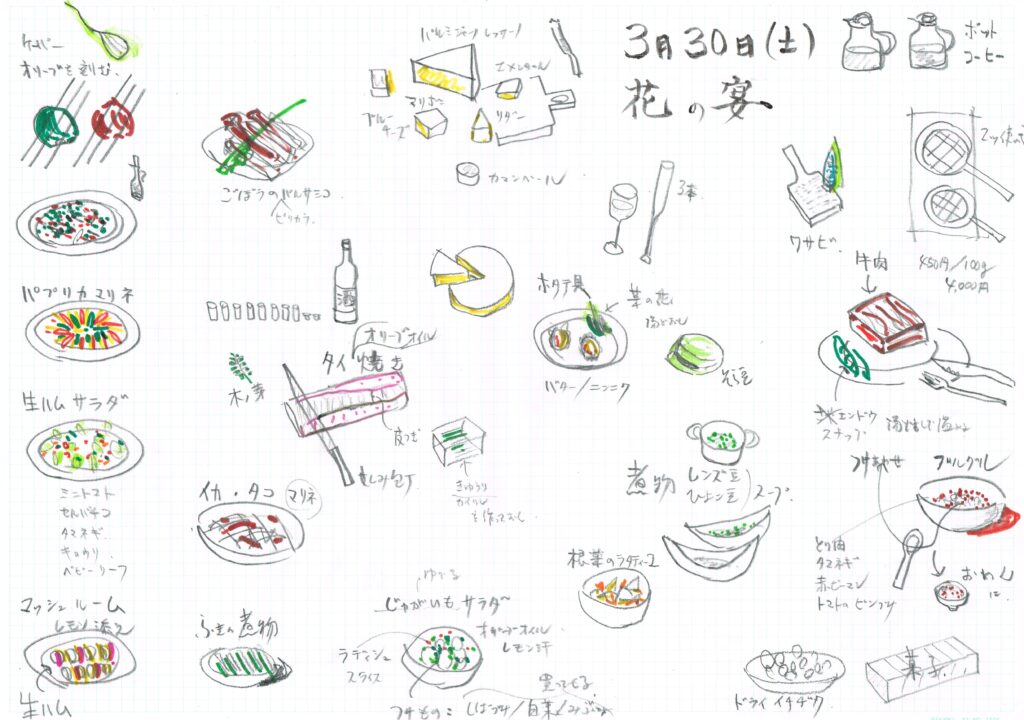 3月30日(土)
花の宴
ポット
コーヒー
ケーパー
オリーブを刻む.
パルミジャーノレッジャーノ
エメンタール
マリボー
ブルー
チーズ
リダー
カマンベール
ごぼうのバルサミコ
ピリカラ
3本
ワサビ.
450円/100g
4,000円
牛肉
パプリカマリネ
酒
オリーブオイル
タイ焼き
木ノ芽
皮つき
ホタテ貝
菜の花
湯どおし
バター/ニンニク
そら豆
エンドウ
スナップ
生ハムサラダ
ミニトマト
セルバチコ
タマネギ.
キュウリ.
ベビーリーフ
さしみ包丁
きゅうり
を作っておく
イカ・タコ
マリネ
煮物
レンズ豆
ひよこ豆
スープ.
つけあわせ
ブルグル
とり肉
タマネギ
赤ピーマン
おわんに.
根菜のラタティーユ
マッシュルーム
レモン添え
生ハム
ふきの煮物
ゆでる
じゃがいもサラダ
オリーブオイル
レモン汁
ラディッシュ
スライス
買ってくる
つけもの:しばづけ/白菜/みぶな
ドライイチヂク
菓子!!